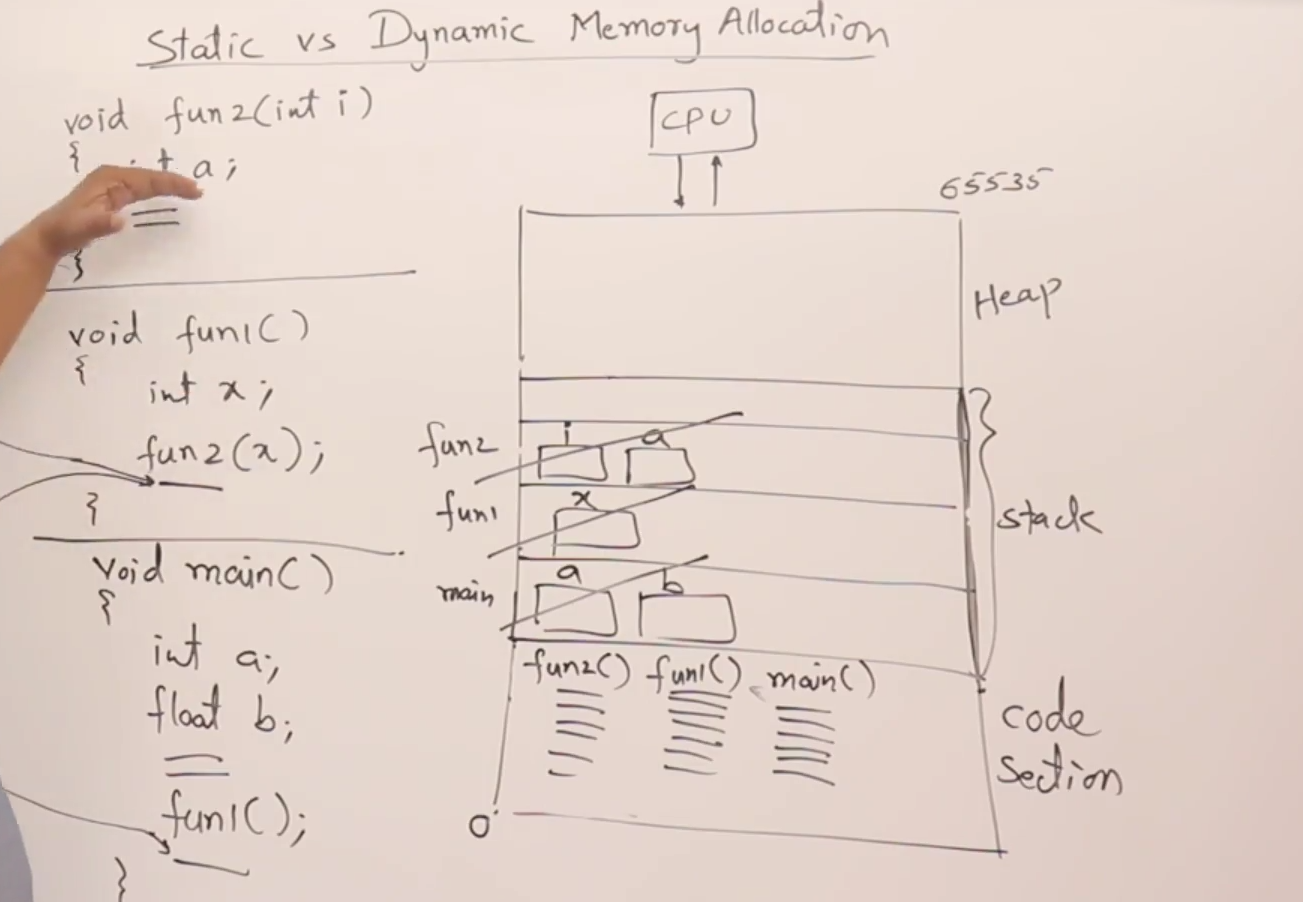 Static vs Dynamic Memory Allocation
void fun2(int i)
{ int a;
}
void fun1()
{
int x;
fun2(x);
}
void main()
{
int a;
float b;
fun1();
}
CPU
65535
Heap
fun2 i a
fun1 x
main a b
stack
fun2() fun1() main()
code
section
0